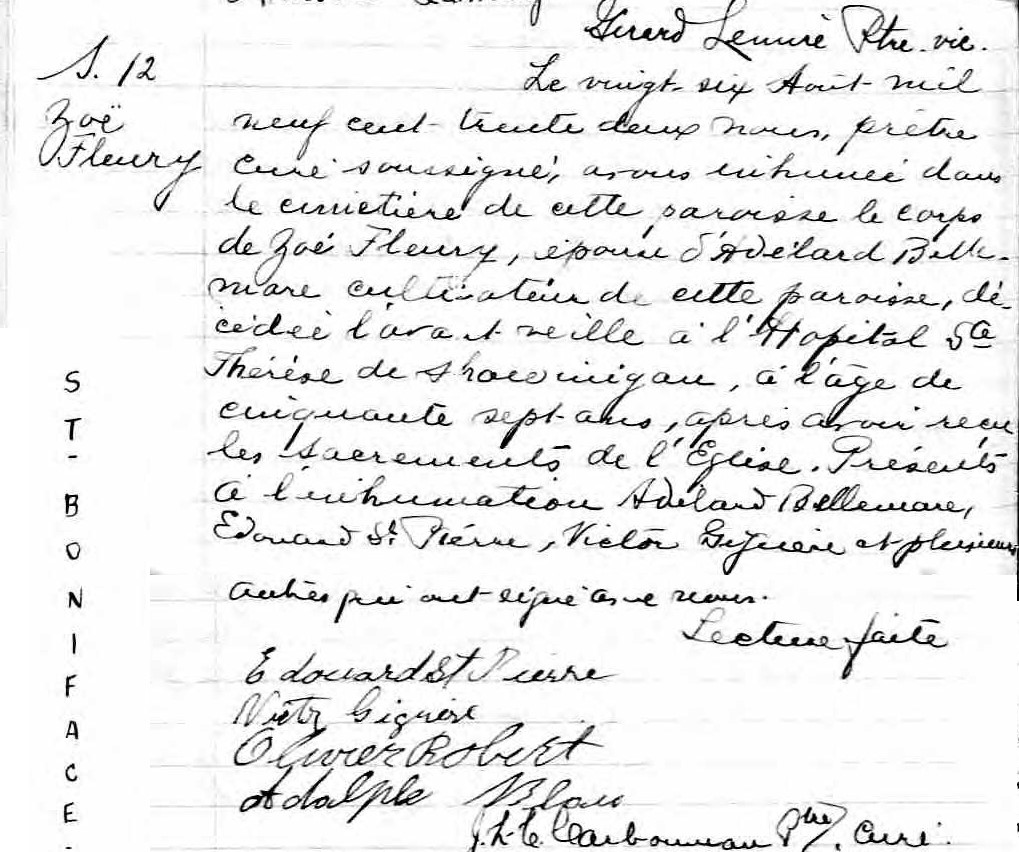 Gérard Lemire Ptre. vic.
S. 12
Zoë
Fleury
Le vingt-six Août mil
neuf cent trente deux nous, prêtre
curé soussigné, avons inhumée dans
le cimetière de cette paroisse le corps
de Zoé Fleury, épouse d'Adélard Belle-
mare cultivateur de cette paroisse, dé-
cédée l'avant veille à l'Hopital Ste
Thérèse de Shawinigan, à l'âge de
cinquante sept ans, après avoir reçu
les sacrements de l'Eglise. Présents
à l'inhumation Adélard Bellemare,
Edouard St. Pierre, Victor Gignère et plusieurs
autres qui ont signé avec nous.
Lecture faite
Edouard St Pierre
Victor Gignère
Olivier Robert
Adolphe Blais
Carbonneau Ptre, Curé.
S
T
-
B
O
N
I
F
A
C
E